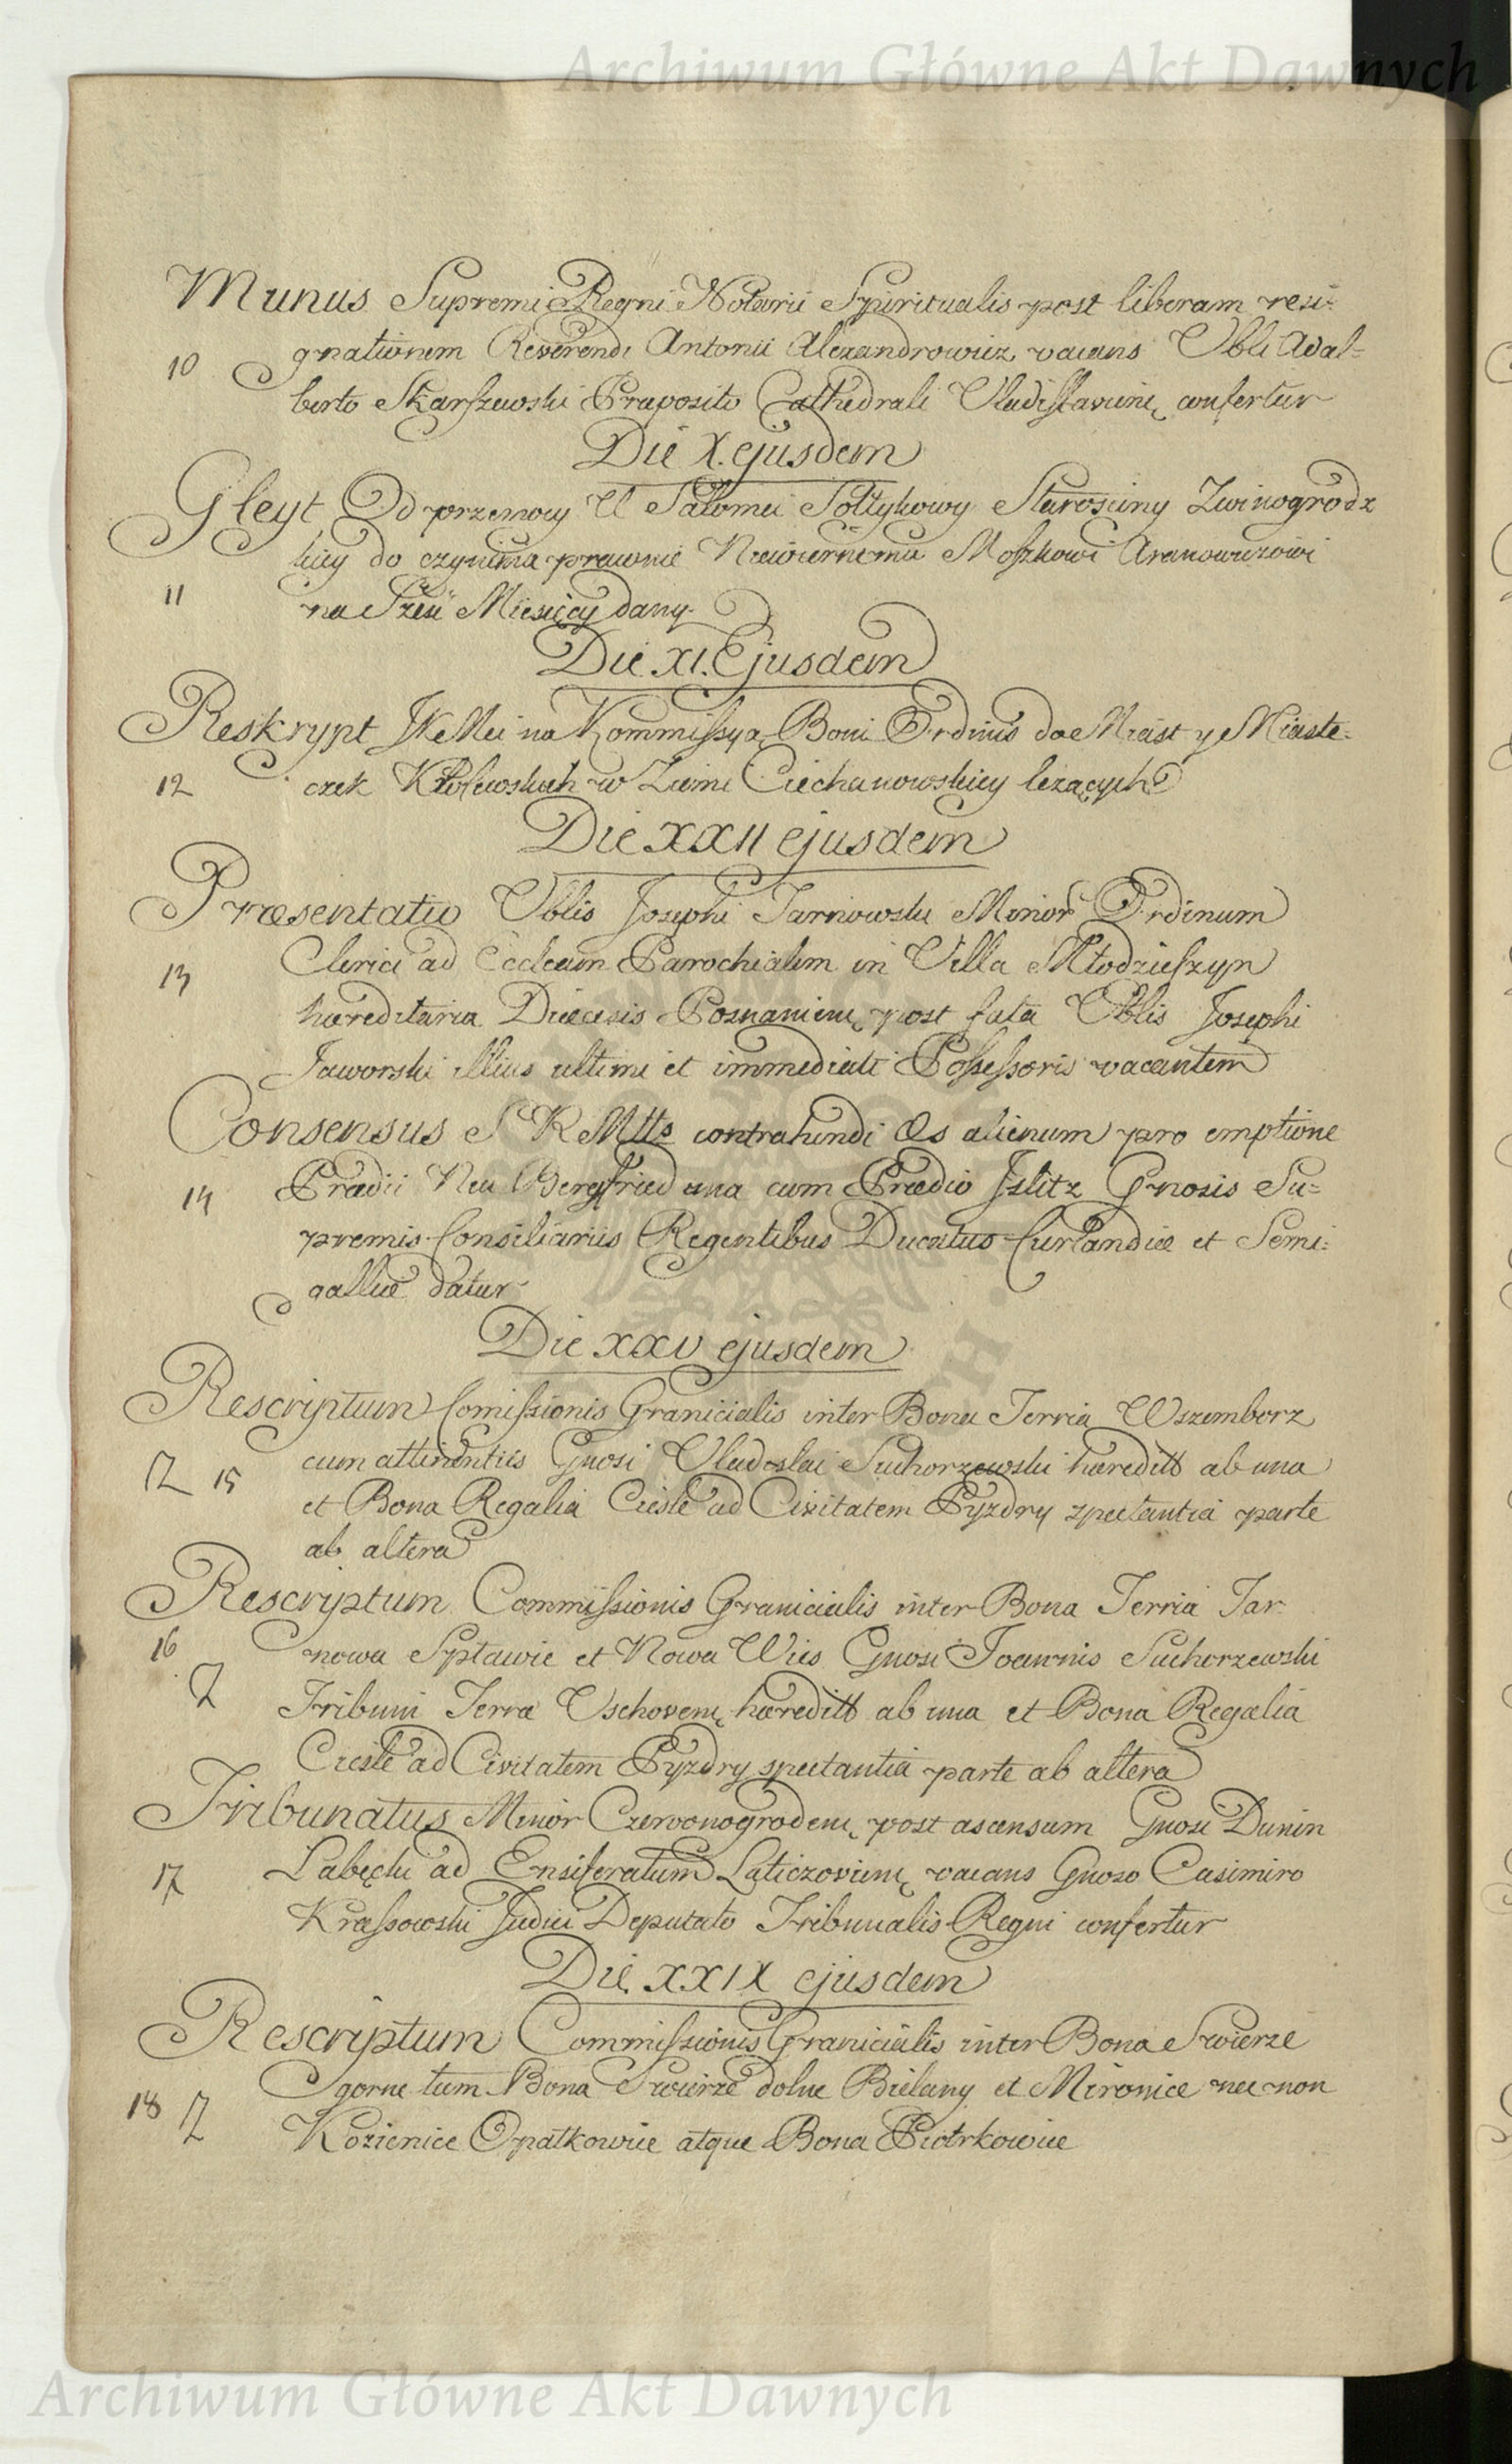 Archiwum Główne Akt Dawnych
Munus Supremi Regni Notarii Spiritualis post liberam resi=
10 gnationem Reverendi Antonii Alexandrowicz vacans Vbli Adal=
berto Skarszewski Præposito Cathedrali Vladislavienę confertur
Die X. ejusdem
Gleyt Od przemocy U Salomei Sołtykowy Starosciny Zwinogrodz
kiey do czynienia prawnie Niewiernemu Moszkowi Aranowiczowi
11 na Szesc Miesięcy dany
Die XI. Ejusdem
Reskrypt JKMci na Kommissyą Boni Ordinis do Miast y Miaste=
12 czek Krolewskich w Ziemi Ciechanowskiey leżących
Die XXII ejusdem
Præsentatio Vblis Josephi Tarnowski Minor Ordinum
Clerici ad Eccleam Parochialem in Villa Młodzieszyn
13 hæreditaria Diecesis Posnanienę post fata Vblis Josephi
Jaworski illius ultimi et immediati Possessoris vacantem
Consensus S R Mttis contrahendi Æs alienum pro emptione
14 Prædii Neu Bergfried una cum Prædio Islitz Gnosis Su=
premis Consiliariis Regentibus Ducatus Curlandiæ et Semi=
galliæ datur
Die XXV ejusdem
Rescriptum Comissionis Granicialis inter Bona Terria Wszemborz
15 cum attinentiis Gnosi Vladislai Suchorzewski hæreditt ab una
et Bona Regalia Ciesle ad Civitatem Pyzdry spectantia parte
ab altera
Rescriptum Commissionis Granicialis inter Bona Terria Tar=
16 nowa Spławie et Nowa Wies Gnosi Joannis Suchorzewski
Tribuni Terræ Vschovenę hæreditt ab una et Bona Regalia
Ciesle ad Civitatem Pyzdry spectantia parte ab altera
Tribunatus Minor Czerwonogrodenę post ascensum Gnosi Dunin
17 Łabęcki ad Ensiferatum Laticzovienę vacans Gnoso Casimiro
Krassowski Judici Deputato Tribunalis Regni confertur
Die XXIX ejusdem
Rescriptum Commissionis Granicialis inter Bona Swierze
gorne tum Bona Swierze dolne Bielany et Mironice nec non
18 Kozienice Opatkowice atque Bona Piotrkowice
Archiwum Główne Akt Dawnych